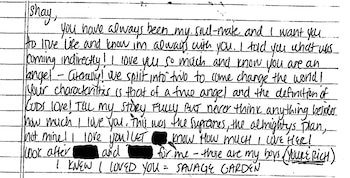 Shay,
You have always been my soul-mate and I want you
to live life and know im always with you. I told you what was
coming indirectly! I love you so much and know you are an
angel - literally! We split into two to come change the world!
Your characteristics is that of a true angel and the definition of
God's love! Tell my story fully but never think anything besides
how much I love you. This was the supremes, the almightys plan,
not mine! I love you! Let know how much I love her!
Look after and for me - those are my boys (YOU'RE RICH)
I KNEW I LOVED YOU = SAVAGE GARDEN